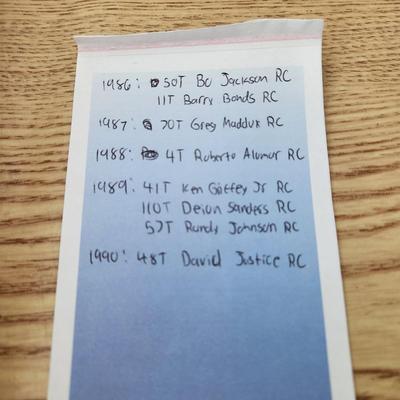 1986: 50T Bo Jackson RC
11T Barry Bonds RC
1987: 70T Greg Maddux RC
1988: 4T Roberto Alomar RC
1989: 41T Ken Griffey Jr RC
110T Deion Sanders RC
57T Randy Johnson RC
1990: 48T David Justice RC